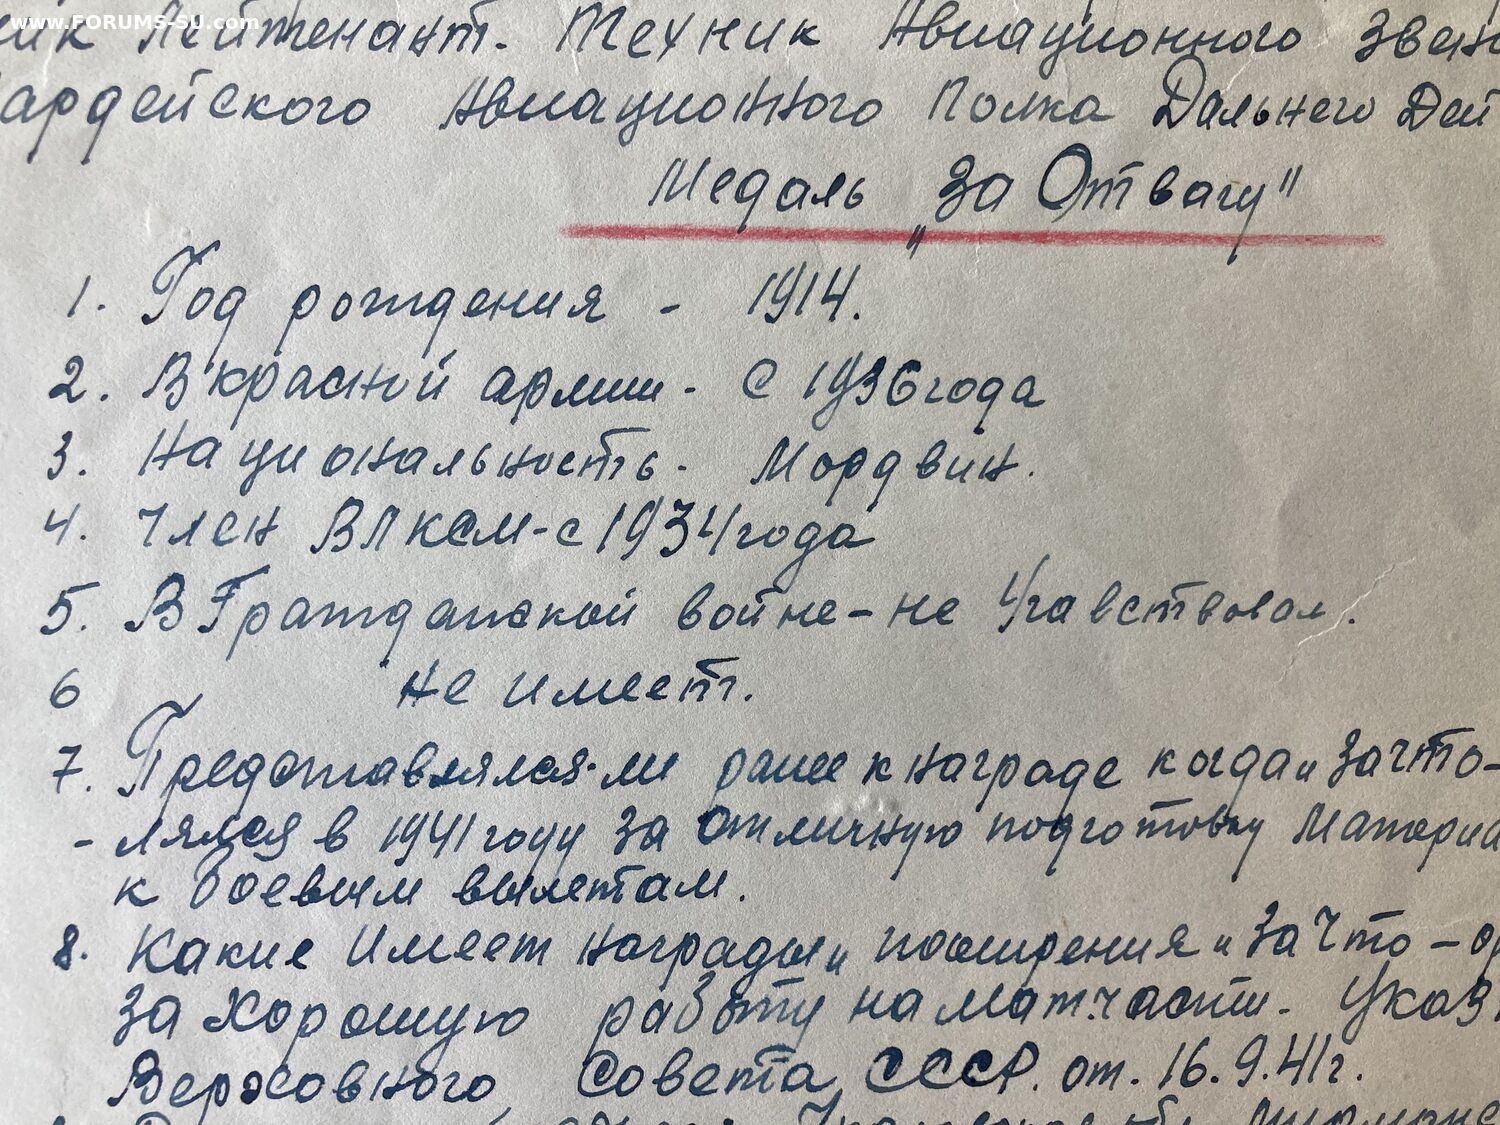 www.FORUMS-SU.com
Лейтенант. Техник Авиационного Звен
ардейского Авиационного Полка Дальнего Дей
Медаль „За Отвагу"
1. Год рождения - 1914.
2. В красной армии - С 1936 года
3. Национальность - Мордвин.
4. Член ВЛКСМ - с 1934 года
5. В Гражданской войне - не Учавствовал.
6 Не имеет.
7. Представлялся-ли ранее к награде когда и за что -
- лялся в 1941 году за отличную подготовку Материа
к боевым вылетам.
8. Какие Имеет награды и поощрения и за Что - ор
За Хорошую работу на матчасти. Указ
Верховного Совета СССР. от. 16.9.41г.